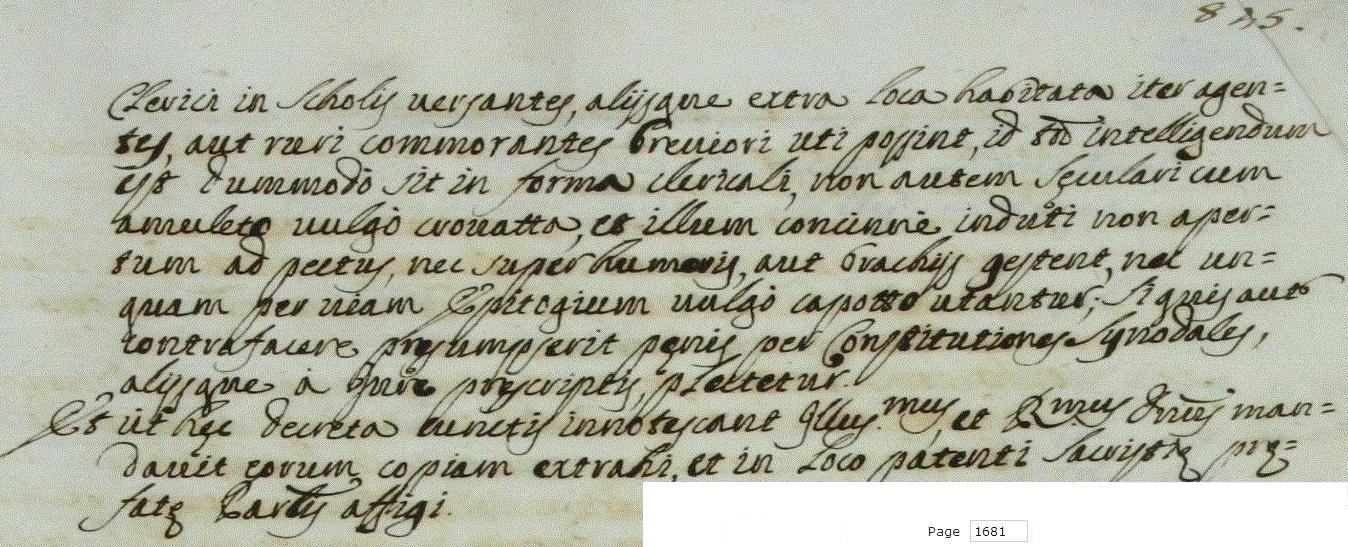 825.
Clerici in Scholis uersantes, alijsque extra loca habitata iter agen=
tes, aut ruri commorantes breuiori uti possint, id tñ intelligendum
est dummodo sit in forma clericali, non autem sęculari cum
amuleto uulgò crouatta, et illum concinnè induti non aper=
tum ad pectus, nec super humeris, aut brachijs gestent, nec un=
quam per uiam Epitogium uulgò capotto utantur; si quis aut
contrafacere pręsumpserit pęnis per Constitutiones Synodales,
alijsque à Jure prescriptis, plectetur.
Et ut hęc decreta cunctis innotescant Illus.mus, et R.mus Dnus man=
dauit eorum copiam extrahi, et in loco patenti Sacristię prę=
fatę affigi.
Page 1681